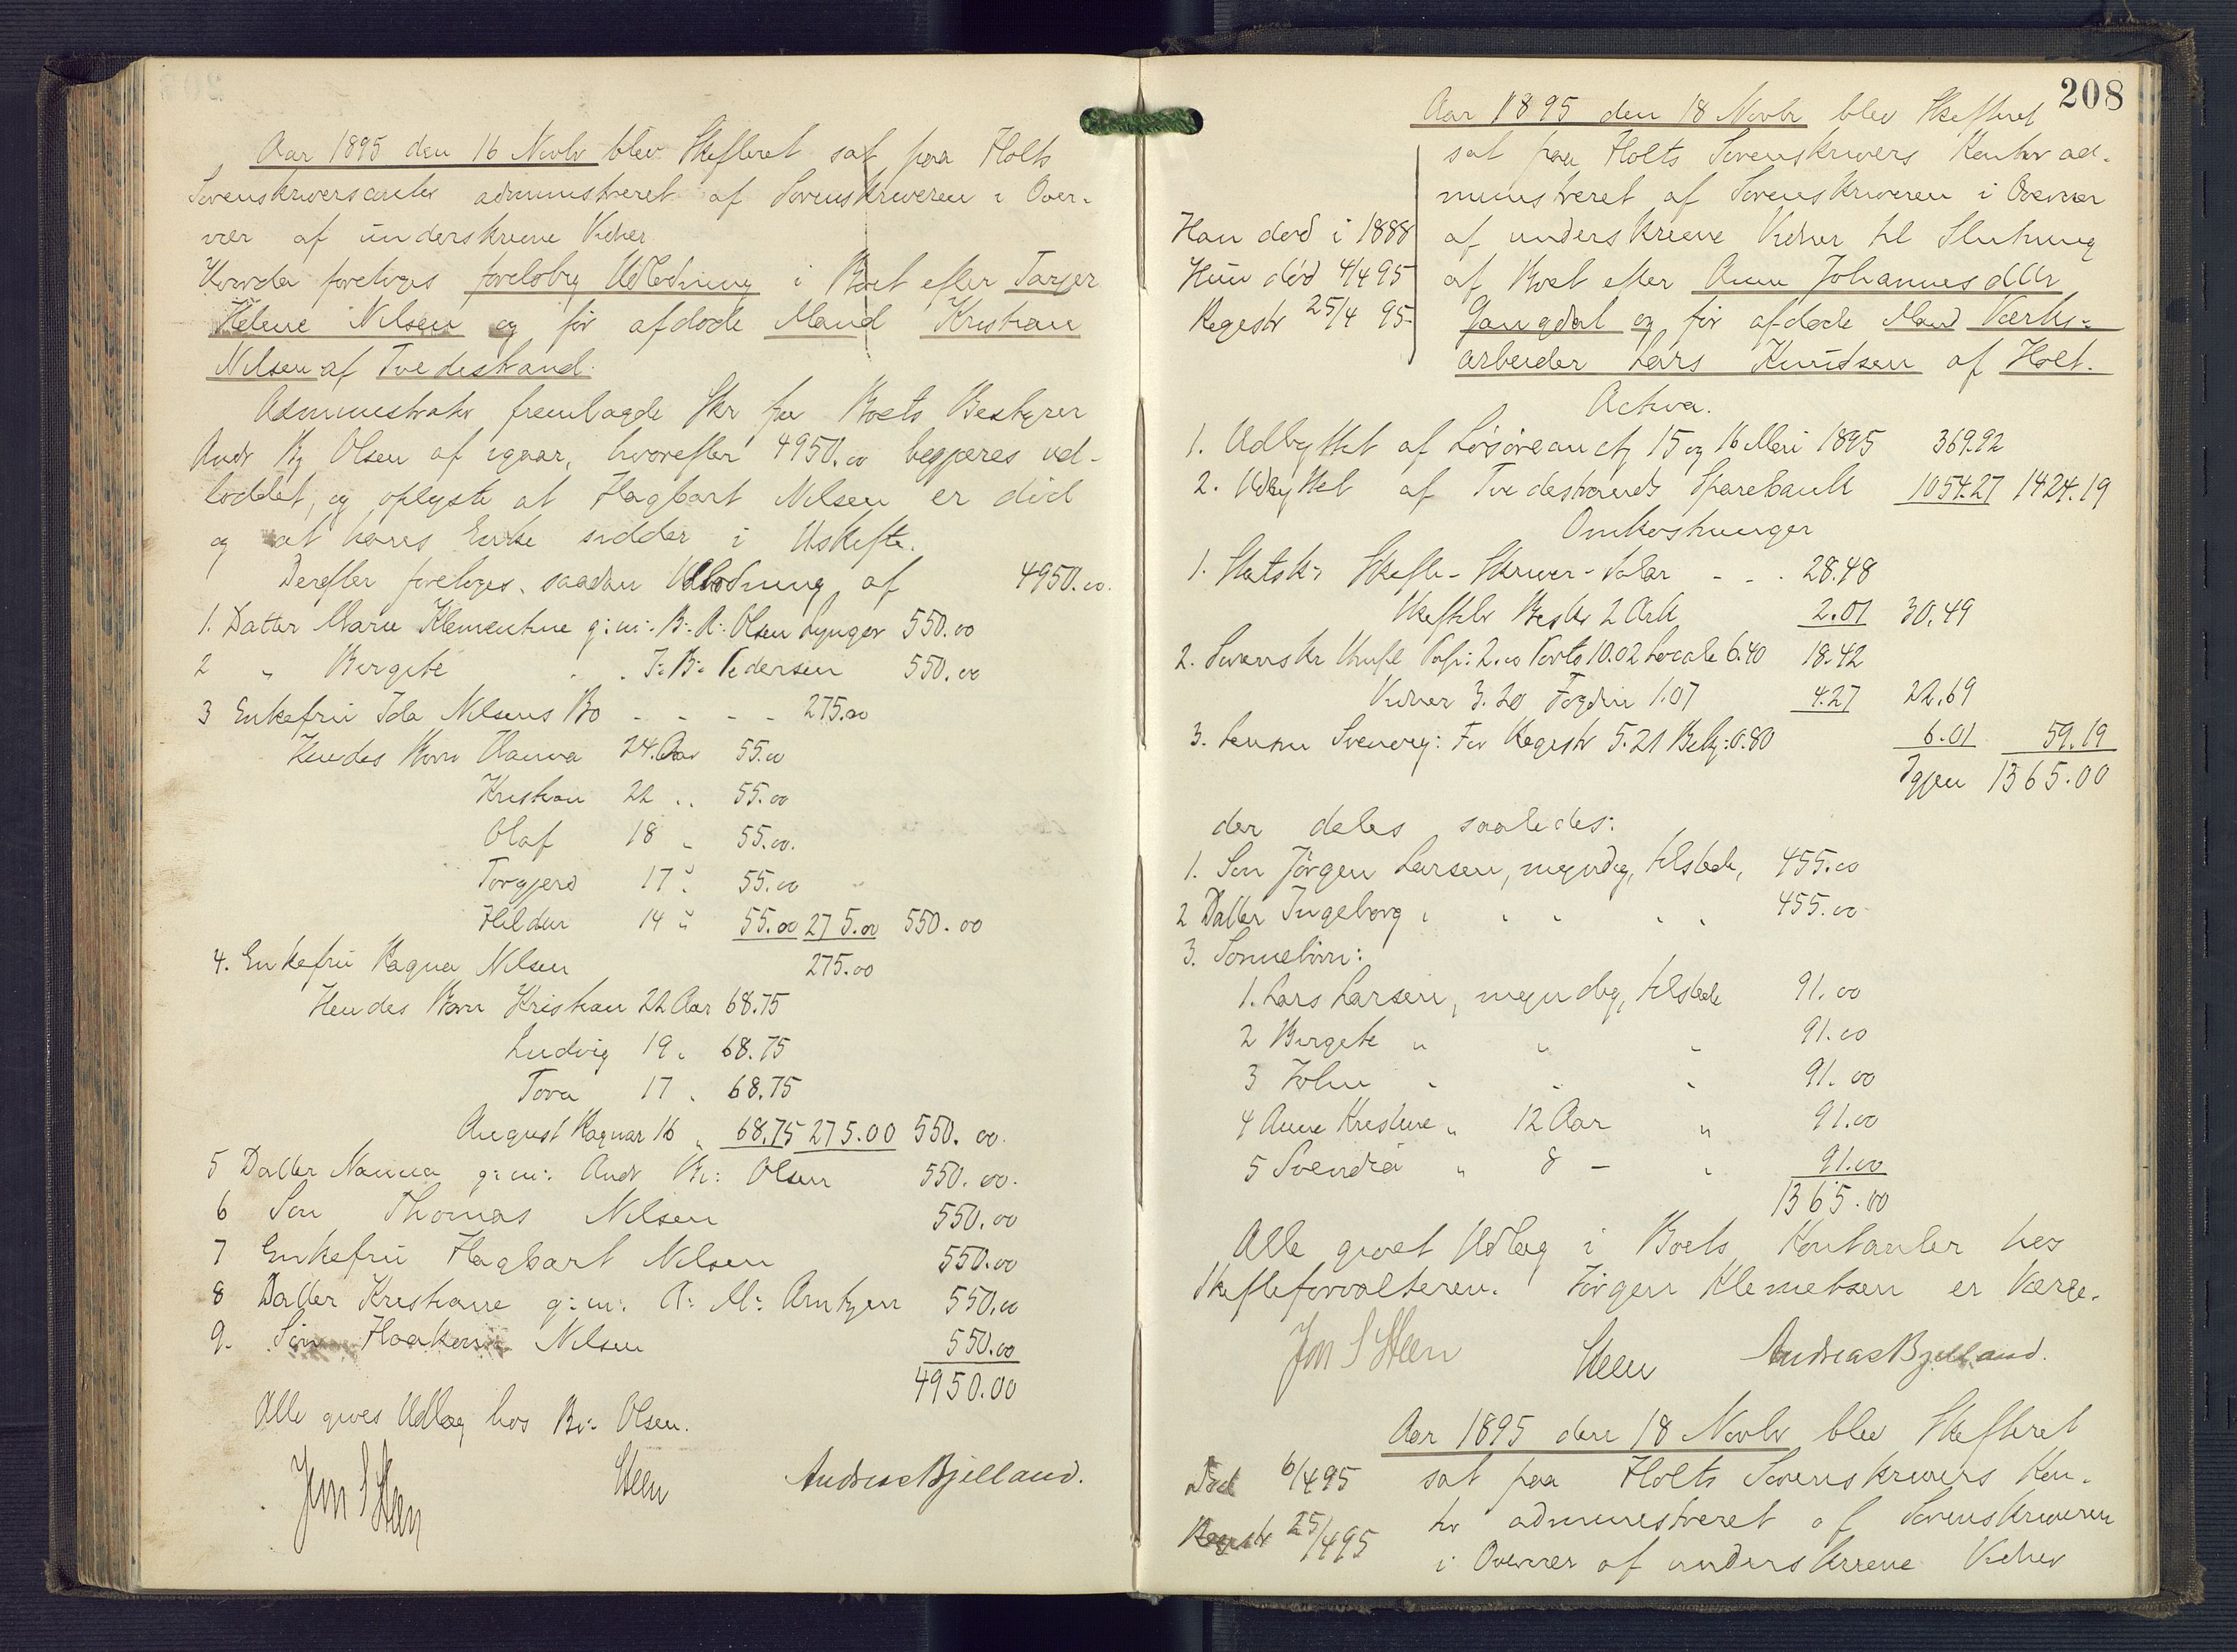 Aar 1895 den 16 Novbr blev Skifteret sat paa Holts
Sorenskriverscontor administreret af Sorenskriveren i Over-
vær af underskrevne Vidner
Hvorda foretoges foreløbig Udlodning i Boet efter Tarjer
Helene Nilsen og før afdøde Mand Kristian
Nilsen af Tvedestrand.
Administrator fremlagde Skr fra Boets Bestyrer
Andr Bj Olsen af igaar, hvorefter 4950.00 begjæres ud-
loddet, og oplyste at Hagbart Nilsen er død
og at hans Enke sidder i Uskifte.
Derefter foretoges saadan Udlodning af 4950.00.
1. Datter Marie Klementine g:m: B: A: Olsen Lyngør 550.00
2 " Birgite " " J: B: Pedersen 550.00
3 Enkefru Ida Nilsens Bo - - - - 275.00
Hendes Børn Hanna 24. Aar 55.00
Kristian 22 " 55.00
Olaf 18 " 55.00.
Torgjerd 17 " 55.00
Hildur 14 " 55.00 275.00 550.00
4. Enkefru Ragna Nilsen 275.00
Hendes Børn Kristian 22 Aar 68.75
Ludvig 19 " 68.75
Tora 17 " 68.75
August Ragnar 16 " 68.75 275.00 550.00.
5 Datter Nanna g:m: Andr Bj: Olsen 550.00.
6 Søn Thomas Nilsen 550.00
7 Enkefru Hagbart Nilsen 550.00
8 Datter Kristiane g:m: A: M: Arntzen 550.00
9. Søn Haakon Nilsen 550.00
4950.00
Alle gives Udlæg hos Bj: Olsen.
Jon S Steen Steen Andreas Bjelland.
208
Aar 1895 den 18 Novbr blev Skifteret
sat paa Holts Sorenskrivers Kontor ad-
ministreret af Sorenskriveren i Overvær
Han død i 1888 af underskrevne Vidner til Slutning
Hun død 4/4 95 af Boet efter Anne Johannesdtr
Registr 25/4 95- Gangdal og før afdøde Mand Værks-
arbeider Lars Knudsen af Holt.
Activa.
1. Udbyttet af Løsøreauct 15 og 16 Mai 1895 369.92
2. Udbyttet af Tvedestrands Sparebank 1054.27 1424.19
Omkostninger
1. Statsk: Skifte-Skriver-Salær - - . 28.48
Skiftebr Beskr 2 Ark 2.01 30.49
2. Sorenskr Papir: 2.00 Porto 10.02 Locale 6.40 18.42
Vidner 3.20 Fogden 1.07 4.27 22.69
3. Lensm Svenvig: For Registr 5.21 Bekj: 0.80 6.01 59.19
Igjen 1365.00
der deles saaledes:
1. Søn Jørgen Larsen, myndig, tilstede, 455.00
2 Datter Ingeborg " " " " " 455.00
3. Sønnebørn:
1. Lars Larsen, myndig, tilstede 91.00
2 Birgite " " " 91.00
3 John " " " 91.00
4 Anne Kristine " 12 Aar " 91.00
5 Svendra " 8 - " 91.00
1365.00
Alle givet Udlæg i Boets Kontanter hos
Skifteforvalteren. Jørgen Klemetsen er Værge.
Jon S Steen Steen Andreas Bjelland.
Aar 1895 den 18 Novbr blev Skifteret
Død 6/4 95 sat paa Holts Sorenskrivers Kon-
Registr 25/4 95 tor administreret af Sorenskriveren
i Overvær af underskrevne Vidner